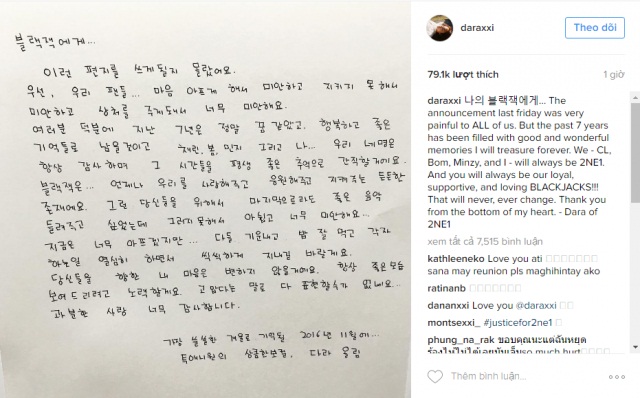 블랙잭에게...
이런 편지를 쓰게될지 몰랐어요.
우선, 우리 팬들... 마음 아프게 해서 미안하고 지키지 못해서
미안하고 상처를 주게돼서 너무 미안해요.
여러분 덕분에 지난 7년은 정말 꿈같았고, 행복하고 좋은
기억들로 남을것이고 채린, 봄, 민지 그리고 나... 우리 네명은
항상 감사하며 그 시간들을 평생 좋은 추억으로 간직할거에요.
블랙잭은... 언제나 우리를 사랑해주고 응원해주고 지켜주는 든든한
존재에요. 그런 당신들을 위해서 마지막으로라도 좋은 음악
들려주고 싶었는데 그러지못해서 아쉽고 너무 미안해요...
지금은 너무 아프겠지만... 다들 기운내고 밥 잘 먹고 각자
하는일 열심히 하면서 씩씩하게 지내길 바랄게요.
당신들을 향한 내 마음은 변하지 않을거에요. 항상 좋은 모습
보여드리려고 노력할게요. 고맙다는 말로 다 표현할수가 없네요...
과분한 사랑 너무 감사합니다.
가장 쓸쓸한 겨울로 기억될 2016년 11월에...
투애니원의 상큼한보컬, 다라 올림
daraxxi
Theo dõi
79.1k lượt thích
1 giờ
daraxxi 나의 블랙잭에게... The
announcement last friday was very
painful to ALL of us. But the past 7 years
has been filled with good and wonderful
memories I will treasure forever. We - CL,
Bom, Minzy, and I - will always be 2NE1.
And you will always be our loyal,
supportive, and loving BLACKJACKS!!!
That will never, ever change. Thank you
from the bottom of my heart. - Dara of
2NE1
xem tất cả 7,515 bình luận
kathleeneko Love you ati
sana may reunion pls maghihintay ako
ratinanb
dananxxi Love you @daraxxi
montsexxi_ #justicefor2ne1
phung_na_rak ขอบคุณนะแต่ฉันหยุด
ร้องไห้ไม่ได้เลยมันเจ็บso much hurt
Thêm bình luận...